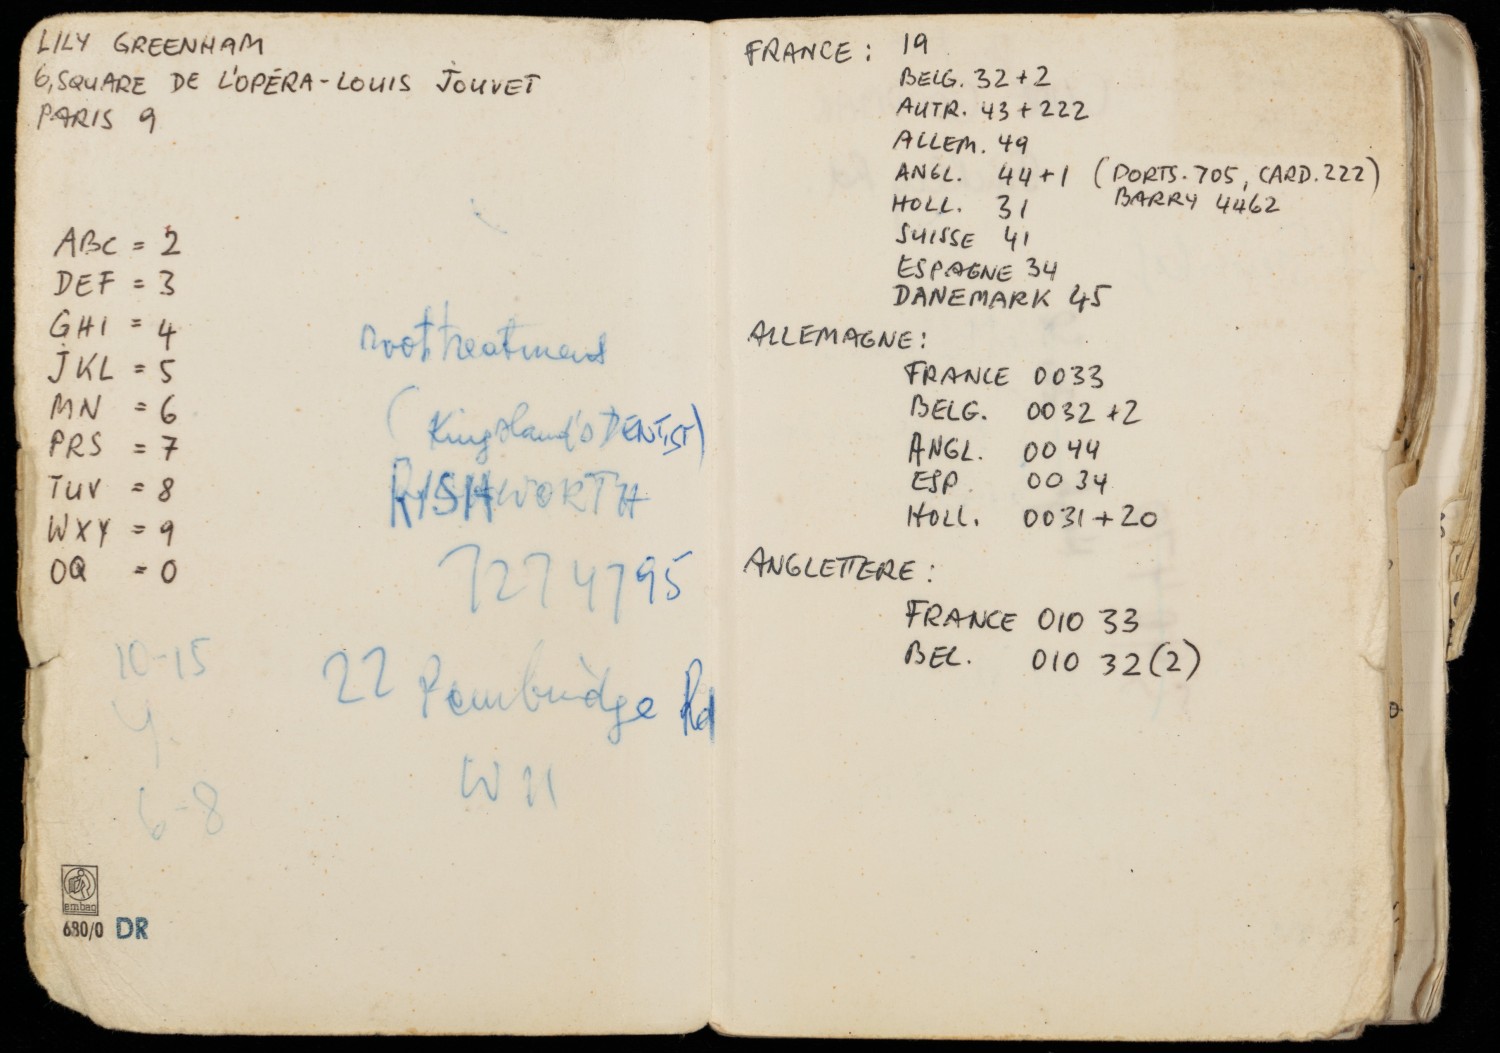 LILY GREENHAM
6, SQUARE DE L'OPÉRA-LOUIS JOUVET
PARIS 9
ABC = 2
DEF = 3
GHI = 4
JKL = 5
MN = 6
PRS = 7
TUV = 8
WXY = 9
OQ = 0
root treatment
(Kingsland's DENTIST)
RISHWORTH
727 4795
22 Pembridge Rd
W 11
10-15
4
6-8
embag
680/0 DR
FRANCE: 19
BELG. 32+2
AUTR. 43+222
ALLEM. 49
ANGL. 44+1 (PORTS. 705, CARD. 222)
BARRY 4462
HOLL. 31
SUISSE 41
ESPAGNE 34
DANEMARK 45
ALLEMAGNE:
FRANCE 0033
BELG. 0032+2
ANGL. 0044
ESP. 0034
HOLL. 0031+20
ANGLETTERE:
FRANCE 010 33
BEL. 010 32(2)